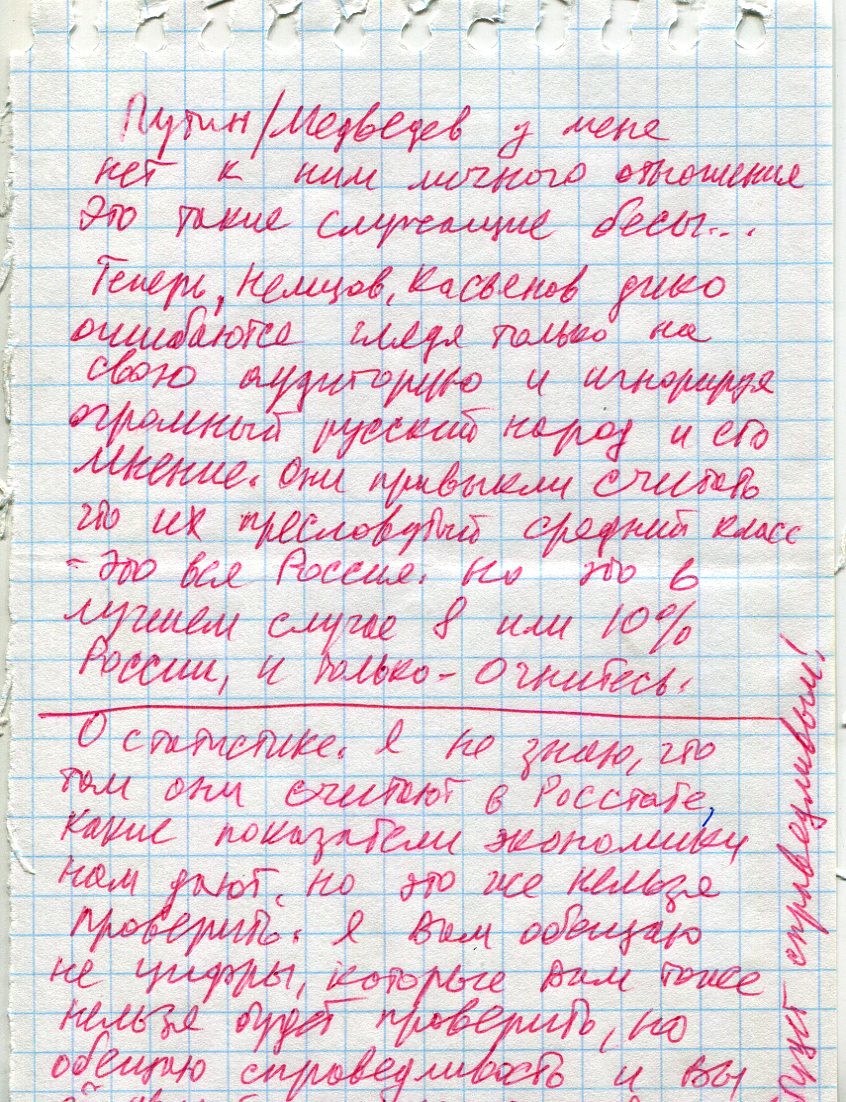 Путин/Медведев у меня
нет к ним личного отношения
Это такие служащие бесы...
Теперь, Немцов, Касьянов дико
ошибаются глядя только на
свою аудиторию и игнорируя
огромный русский народ и его
мнение. Они привыкли считать
что их пресловутый средний класс
- это вся Россия. Но это в
лучшем случае 8 или 10%
России, и только - Очнитесь.
О статистике. Я не знаю, что
там они считают в Росстате,
какие показатели экономики
нам дают, но это же нельзя
проверить. Я Вам обещаю
не цифры, которые Вам тоже
нельзя будет проверить, но
обещаю справедливость и Вы
будет справедливым!